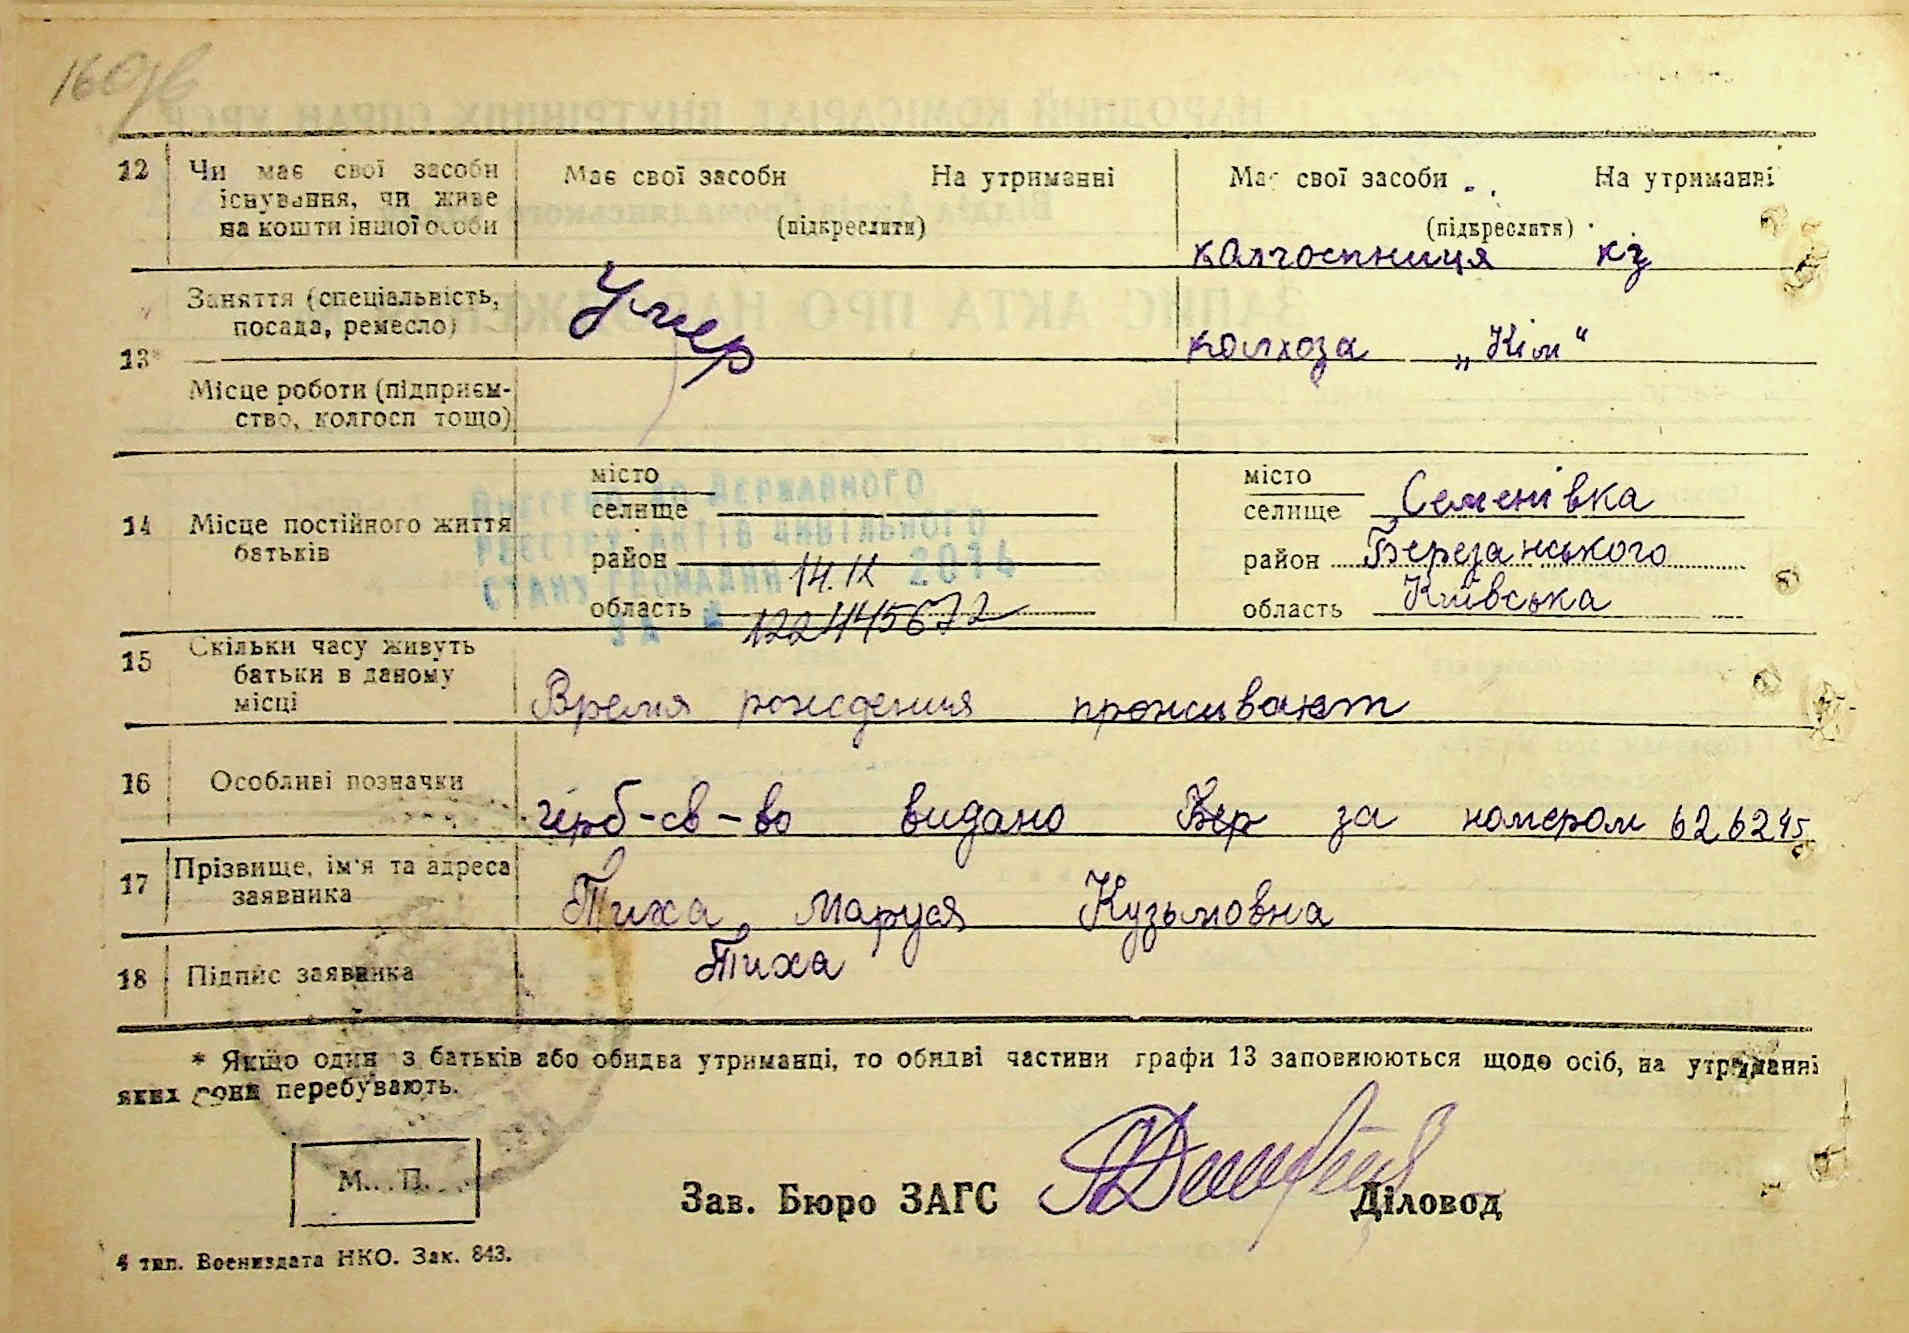 12 Чи має свої засоби Має свої засоби На утриманні Має свої засоби На утриманні
існування, чи живе
на кошти іншої особи (підкреслити) (підкреслити)
колгоспниця кз
Заняття (спеціальність, Умер
посада, ремесло) колхоза „Кім“
13*
Місце роботи (підприєм-
ство, колгосп тощо)
місто місто
Внесено до Державного
14 Місце постійного життя селище селище Семенівка
батьків
реєстру актів цивільного
район 14.IX район Березанського
стану громадян 2014
область область Київська
за № 1224445672
15 Скільки часу живуть
батьки в даному
місці Время рождения проживают
16 Особливі позначки герб-св-во видано Бер за номером 626245
17 Прізвище, ім'я та адреса
заявника Тиха Маруся Кузьмовна
18 Підпис заявника Тиха
* Якщо один з батьків або обидва утриманці, то обидві частини графи 13 заповнюються щодо осіб, на утриманні
яких вони перебувають.
М. П.
Зав. Бюро ЗАГС Діловод
4 тип. Воениздата НКО. Зак. 843.